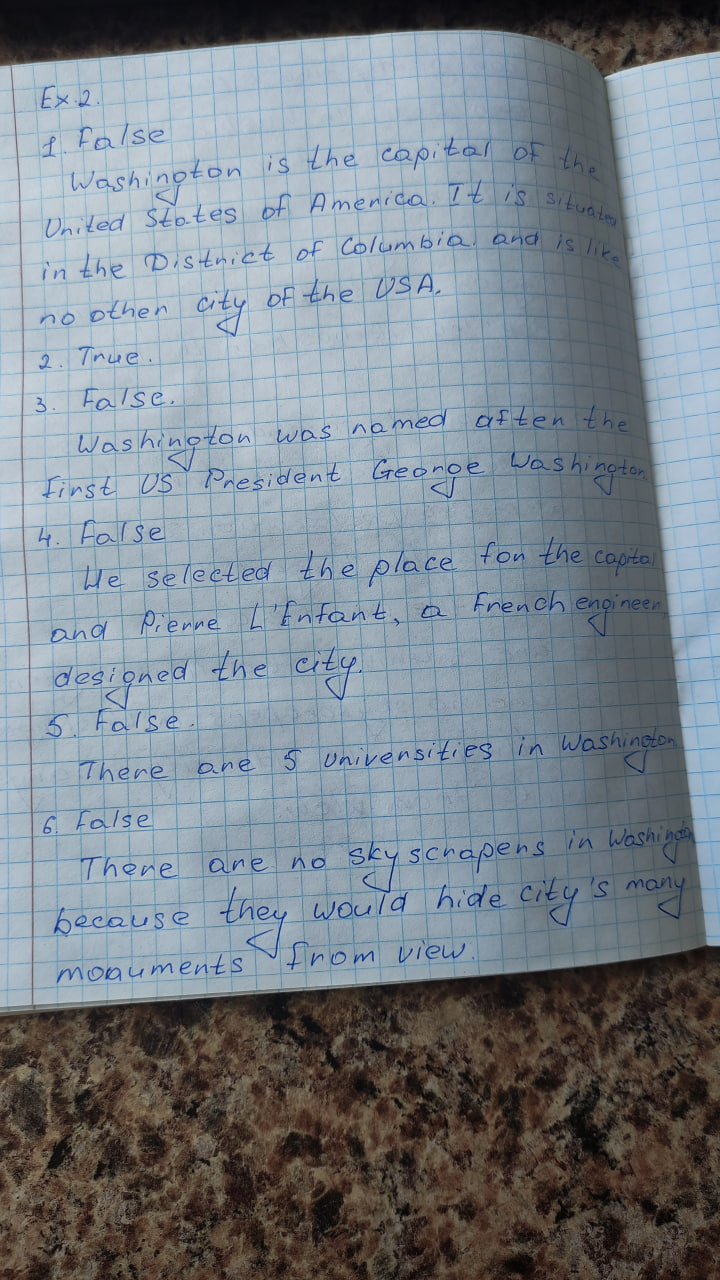 Ex. 2.
1. False
Washington is the capital of the
United States of America. It is situated
in the District of Columbia. and is like
no other city of the USA.
2. True.
3. False.
Washington was named after the
first US President George Washington.
4. False
He selected the place for the capital
and Pierre L'Enfant, a French engineer,
designed the city.
5. False.
There are 5 universities in Washington
6. False
There are no skyscrapers in Washington
because they would hide city's many
monuments from view.